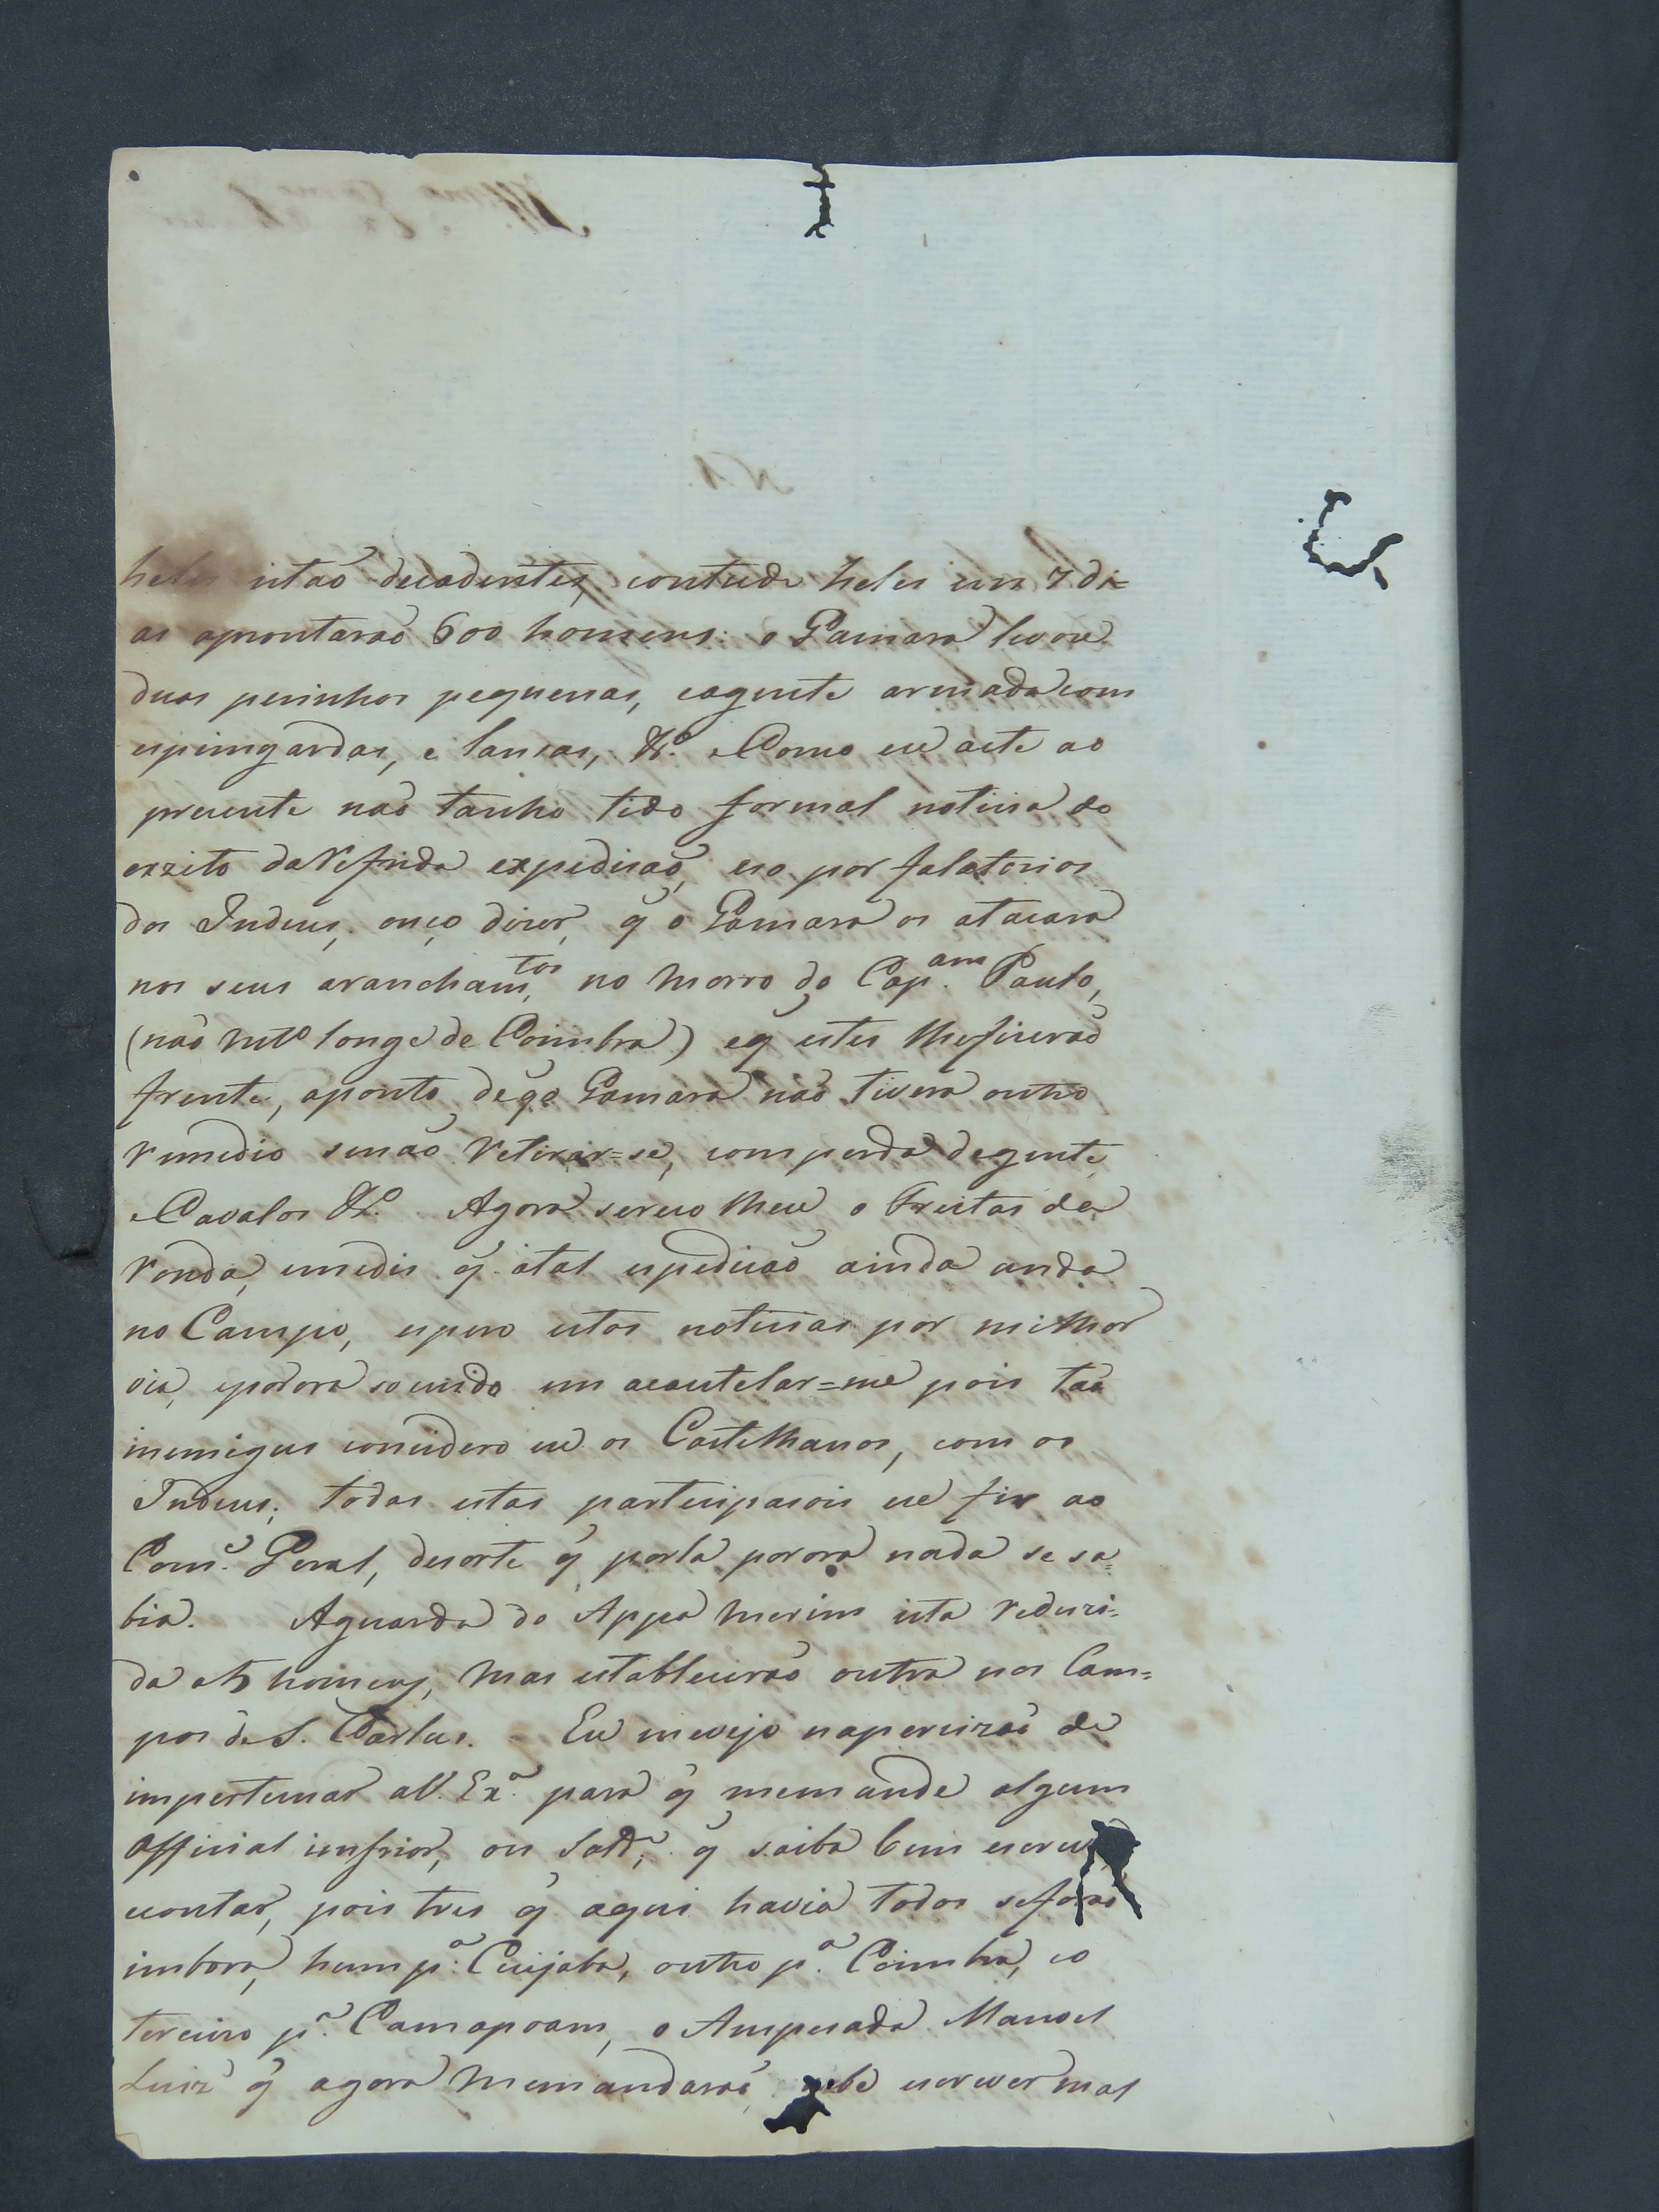 heles estaõ decadentes, contudo heles em 7 di=
as aprontaraõ 600 homens: o Gamara levou
duas pesinhas pequenas, eagente armada com
espingardas, e lansas, &c. Como eu aete ao
prezente naõ tanho tido formal noticia do
exzito da Referida expedisaõ, eso por falatorios
dos Indeus, ouço dizer, q̃ o Gamara os atacara
nos seus aranchamtos, no morro do Cap.am Paulo,
(naõ mto longe de Coimbra) eq̃ estes lhefizeraõ
frente, aponto deq̃o Gamara naõ tivera outro
remedio senaõ Retirar=se, com perda degente,
Cavalos &c. Agora serecolheu o Freitas da
Ronda, emediz q̃ atal espedisaõ ainda anda
no Campo, espero estas noticias por milhor
via, eporora so cuido em acautelar=me pois taõ
inemigus considero eu os Castelhanos, com os
Indeus; todas estas partecipasois eu fiz ao
Com.e Geral, desorte q̃ porla porora nada se sa=
bia. Aguarda do Appa merim esta reduzi=
da a 5 homens, mas establecéraõ outra nos Cam=
pos de S. Carlus. Eu mevejo naprecizaõ de
impertunar aV. Ex.a para q̃ memande algum
Official inferior, ou Sold.o, q̃ saiba bem
econtar, pois tres q̃ aqui havia todos seforaõ
imbora, hum p.a Cuijaba, outro p.a Coimbra, eo
terceiro p.a Camapoam, o Anspesada Manoel
Luiz q̃ agora memandaraõ, sabe escrever mal